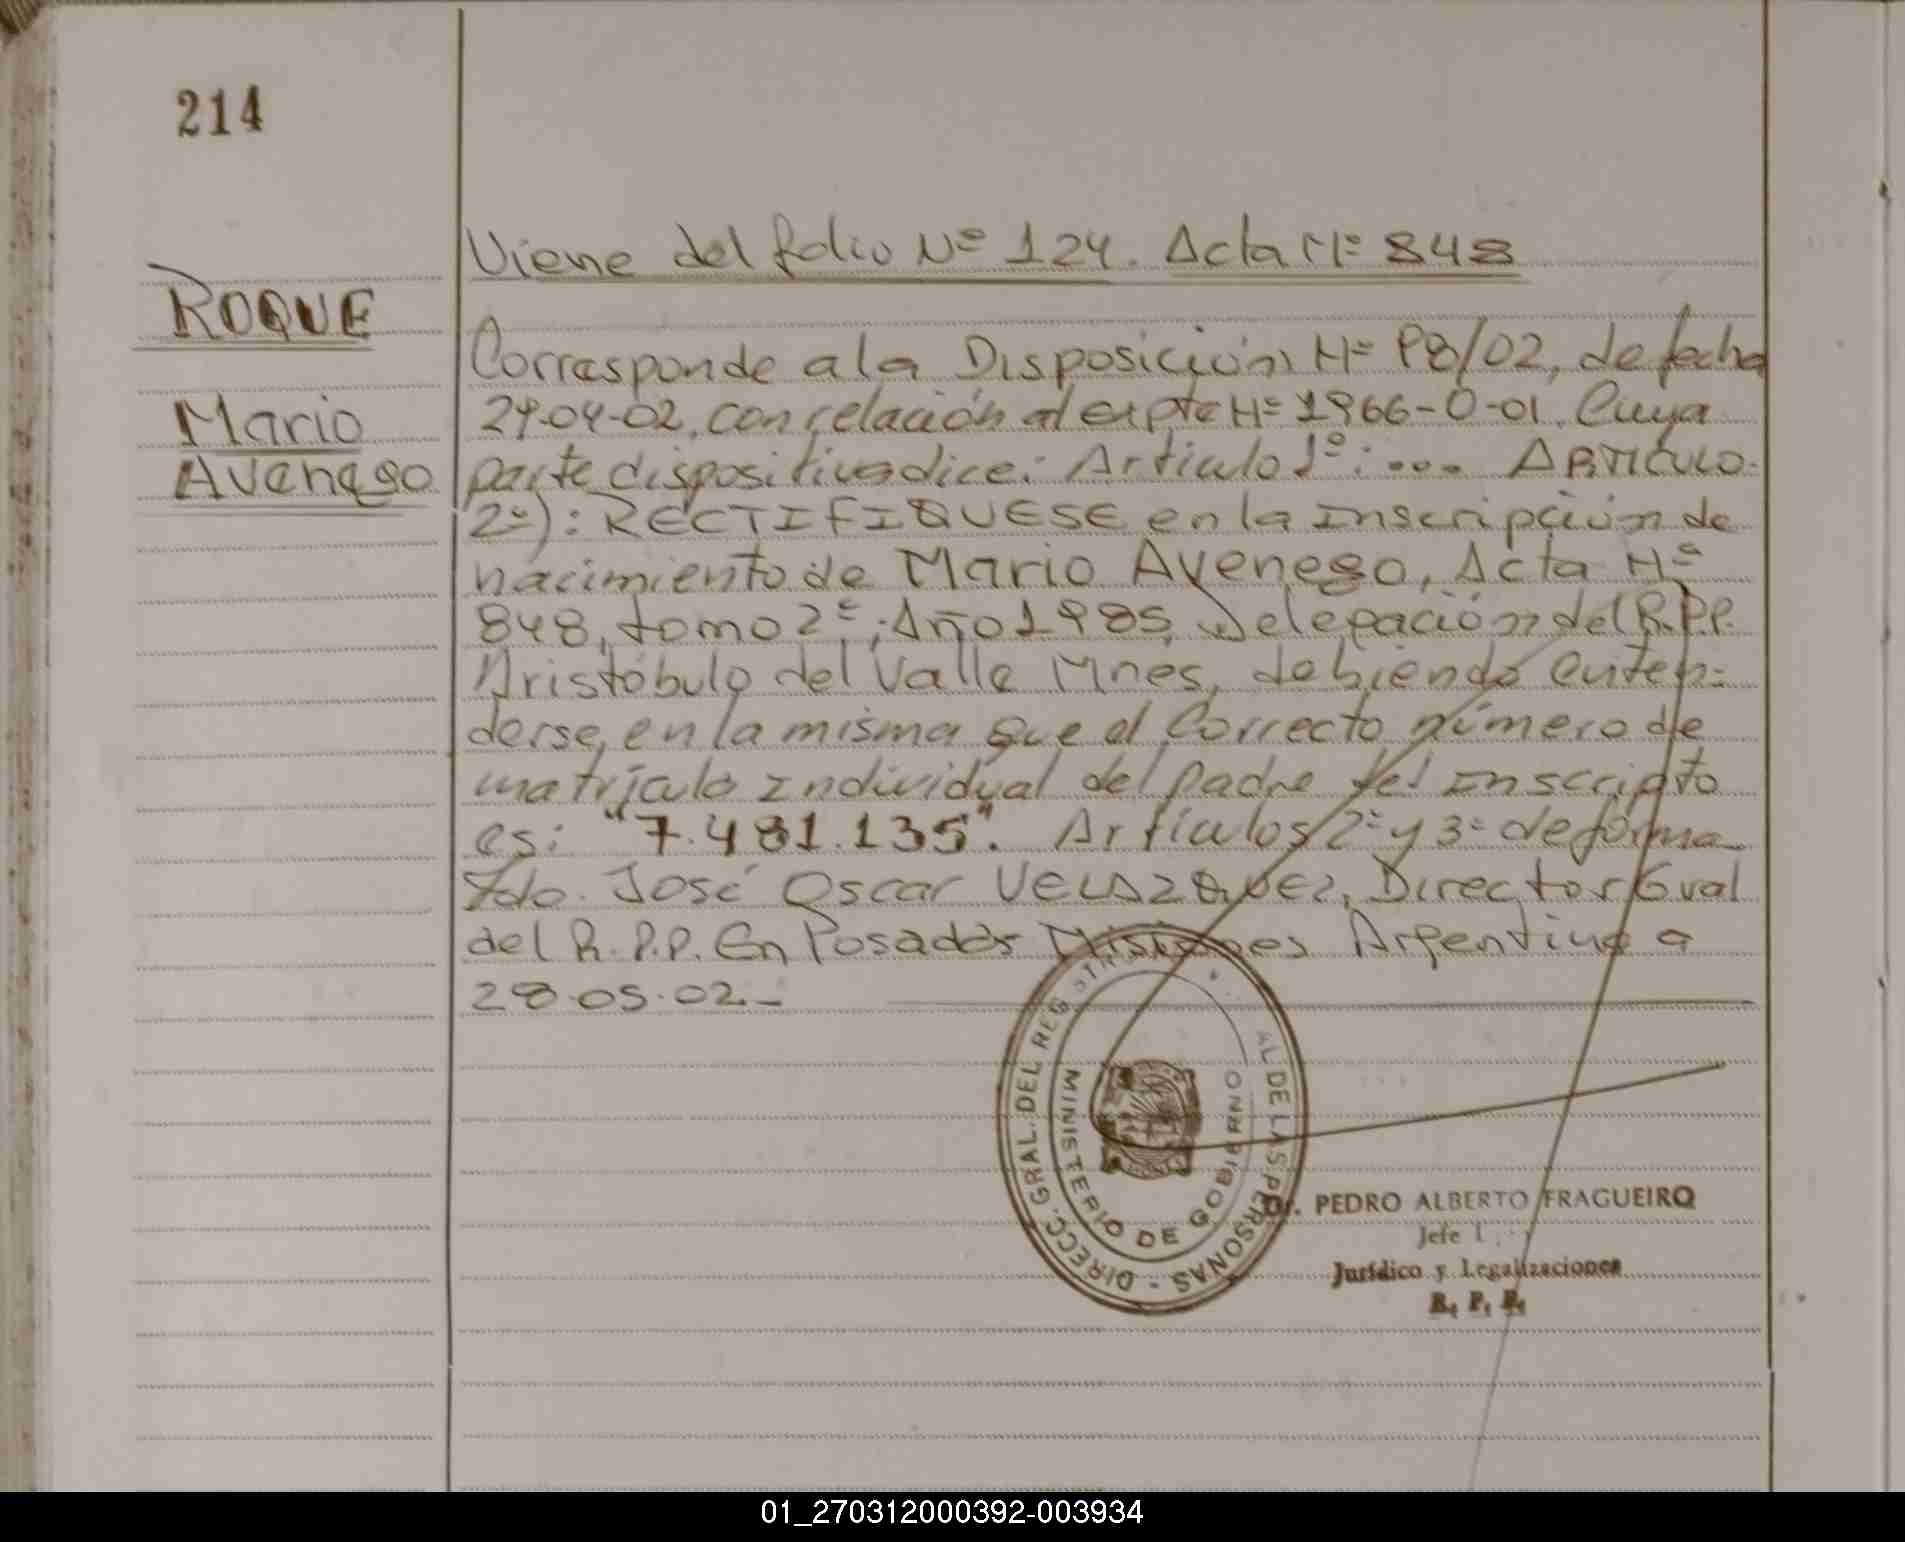 214
ROQUE
Mario
Avenego
Viene del folio Nº 124. Acta Nº 848
Corresponde a la Disposición Nº 98/02, de fecha
29-04-02, con relación al expte Nº 1966-O-01. Cuya
parte dispositiva dice: Articulo 1º: .... ARTICULO-
2º): RECTIFIQUESE en la Inscripción de
nacimiento de Mario Avenego, Acta Nº
848, tomo 2º, Año 1985, Delegación del R.P.P.
Aristóbulo del Valle Mnes, debiendo enten-
derse, en la misma que el Correcto número de
matrícula Individual del padre del Inscripto
es: "7.481.135". Artículos 2º y 3º de forma
Fdo. José Oscar VELAZQUEZ, Director Gral
del R.P.P. En Posadas Misiones Argentina a
28-05-02-
DIRECC. GRAL. DEL REG AL DE LAS PERSONAS -
MINISTERIO DE GOBIERNO
Dr. PEDRO ALBERTO FRAGUEIRO
Jefe
Jurídico y Legalizaciones
R. P. P.
01_270312000392-003934